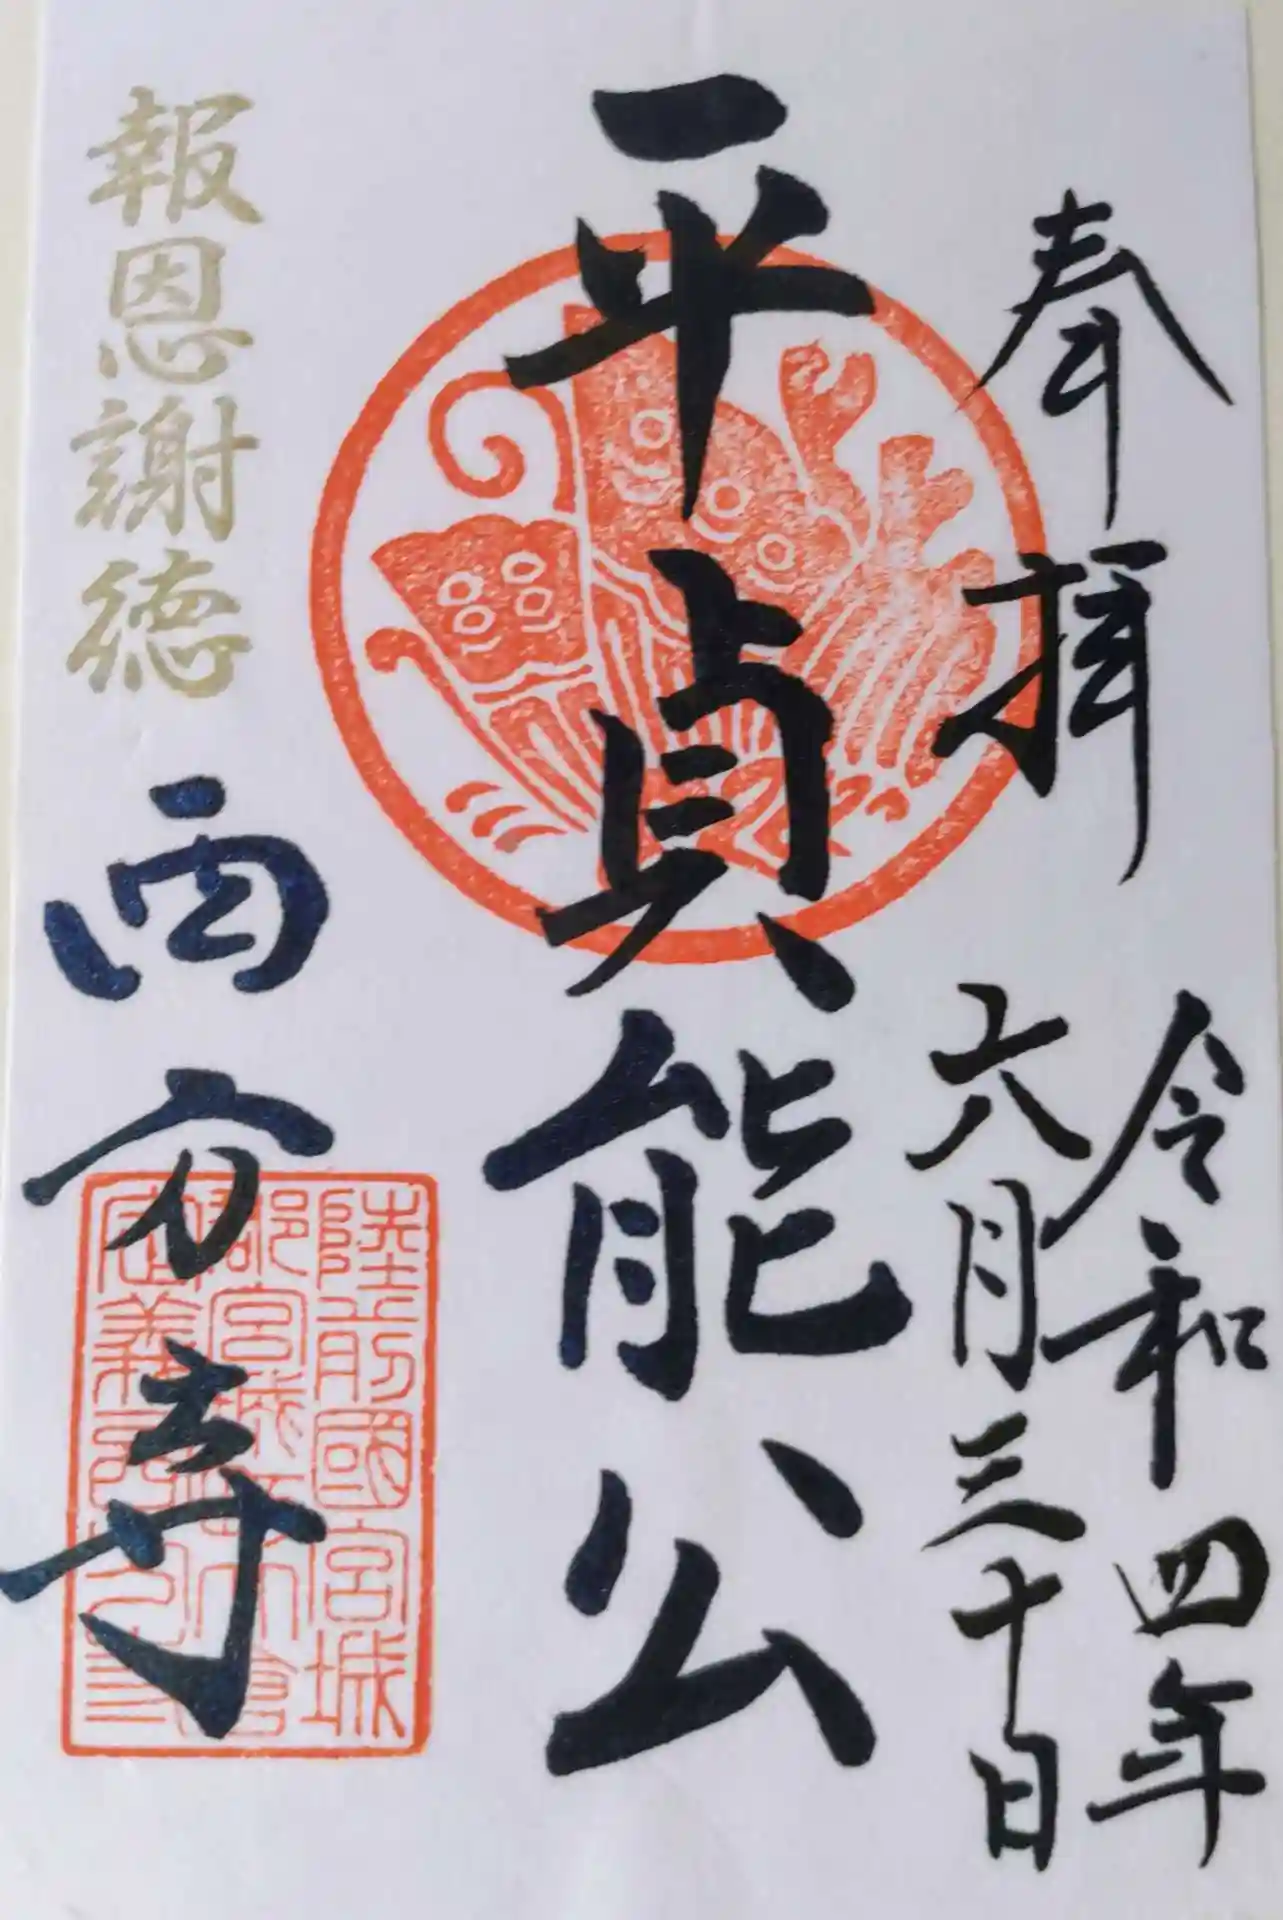 奉拝
令和四年
六月三十日
平貞能公
報恩謝徳
西方寺
陸前國宮城